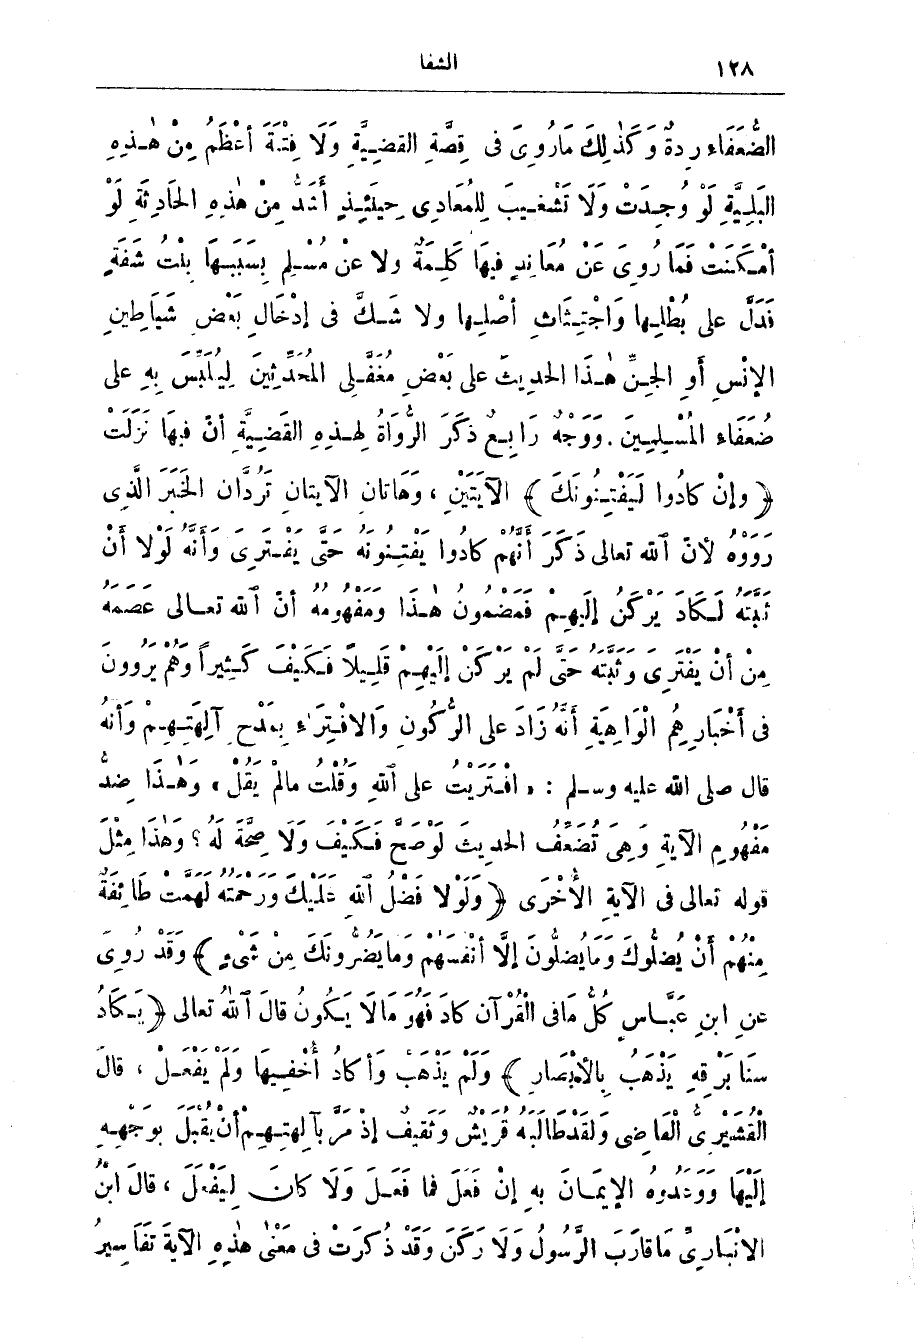 ١٢٨ الشفا
الضُّعَفَاءِ رِدةٌ وَكَذٰلِكَ مَارُوِىَ فى قِصَّةِ القَضِيَّةِ وَلَا فِتْنَةَ أعْظَمُ مِنْ هٰـذِهِ
البَلِيَّةِ لَوْ وُجِدَتْ وَلَا تَشْغِيبَ لِلْمُعَادِى حِينَئِذٍ أشَدُّ مِنْ هٰذِهِ الحَادِثَةِ لَوْ
أمْكَنَتْ فَمَا رُوِىَ عَنْ مُعَانِدٍ فِيهَا كَلِمَةٌ ولا عنْ مُسْلِمٍ بِسَبَبِهَا بِنْتُ شَفَةٍ
فَدَلَّ على بُطْلِها وَاجْتِثَاثِ أصْلِها ولا شَكَّ فى إدْخَالِ بَعْضِ شَيَاطِينِ
الإنْسِ أوِ الجِنِّ هٰـذَا الحديثَ على بَعْضِ مغَفَّلِى المُحَدِّثِينَ لِيُلَبِّسَ بِهِ على
ضُعَفَاءِ المُسْلِمِينَ . وَوَجْهٌ رَابِعٌ ذَكَرَ الرُّوَاةُ لِهـذِهِ القَضِيَّةِ أنّ فِيهَا نَزَلَت
﴿ وإنْ كادُوا لَيَفْتِنُونَكَ ﴾ الآيَتَيْنِ ، وَهَاتانِ الآيتانِ تَرُدَّانِ الخَبَرَ الَّذِى
رَوَوْهُ لأنّ ٱللهَ تعالى ذَكَرَ أَنَّهُمْ كادُوا يَفْتِنُونَهُ حَتَّى يَفْتَرِىَ وَأنَّهُ لَوْلا أنْ
ثَبَّتَهُ لَـكادَ يَرْكَنُ إلَيْهِمْ فَمَضْمُونُ هٰـذَا وَمَفْهُومُهُ أنّ ٱللهَ تعـالى عَصَمَهُ
مِنْ أنْ يَفْتَرِىَ وَثَبَّتَهُ حَتَّى لَمْ يَرْكَنْ إلَيْهِمْ قَلِيلًا فَـكَيْفَ كَـثِيراً وَهُمْ يَرْوُونَ
فى أخْبَارِهِمُ الْوَاهِيَةِ أنَّهُ زَادَ على الرُّكُونِ وَالافْتِرَاءِ بِمَدْحِ آلِهَتِهِمْ وَأنَّهُ
قال صلى الله عليه وسـلم : « افْتَرَيْتُ على ٱللهِ وَقُلْتُ مالَمْ يَقُلْ » وَهٰـذَا ضِدُّ
مَفْهُومِ الآيَةِ وَهِىَ تُضَعِّفُ الحديثَ لَوْ صَحَّ فَـكَيْفَ وَلَا صِحَّةَ لَهُ ؟ وَهٰذَا مِثْلُ
قوله تعالى فى الآيةِ الأُخْرَى ﴿ وَلَوْلا فَضْلُ ٱللهِ عَلَيْكَ وَرَحْمَتُهُ لَهَمَّتْ طَائِفَةٌ
مِنْهُمْ أنْ يُضِلُّوكَ وَمَا يُضِلُّونَ إلَّا أنْفُسَهُمْ وَمَا يَضُرُّونَكَ مِنْ شَىْءٍ ﴾ وَقَدْ رُوِىَ
عنِ ابنِ عَبَّـاسٍ كُلُّ مَافى الْقُرْآنِ كادَ فَهُوَ مَالَا يَـكُونُ قالَ ٱللهُ تعالى ﴿ يَـكَادُ
سنَا بَرْقِهِ يَذْهَبُ بِالأبْصَارِ ﴾ وَلَمْ يَذْهَبْ وَأكَادُ أُخْفِـيهَا وَلَمْ يَفْعَـلْ ، قالَ
الْقُشَيْرِىُّ الْقَاضِى وَلَقَدْ طَالَبَهُ قُرَيْشٌ وَثَقِيفٌ إذْ مَرَّ بآلِهَتِهِمْ أنْ يُقْبِلَ بِوَجْهِهِ
إلَيْهَا وَوَعَدُوهُ الإيمَـانَ بهِ إنْ فَعَلَ فما فَعَـلَ وَلَا كانَ لِيَفْعَلَ ، قالَ ابْنُ
الانْبَارِىِّ مَاقَارَبَ الرَّسُولُ وَلَا رَكَنَ وَقَدْ ذُكِرَتْ فى مَعْنَى هٰذِهِ الآيَةِ تَفَاسِيرُ